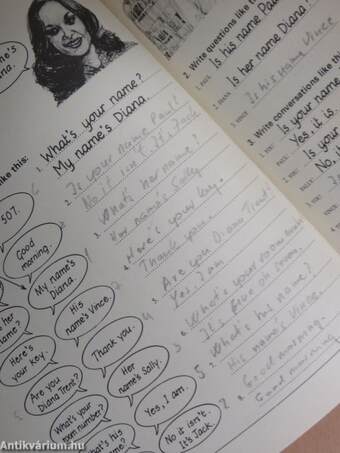 My name's
Diana.
like this:
507.
Good
morning.
My name's
Diana.
His
name's Vince.
her
name?
Here's
your key.
Thank you.
Are you
Diana Trent?
Her
name's Sally.
What's your
room number?
Yes, I am.
What's his
name?
No it isn't.
It's Jack.
1. What's your name?
My name's Diana.
Is your name Paul?
No it isn't. It's Jack
What's her name?
Her name's Sally.
Here's your key.
Thank you.
Are you Diana Trent?
Yes, I am.
What's your room
What's his name?
His name's Vince.
Good morning.
Good morning
Is his name
Is her name Diana?
2. Write questions like
Is his name Vince
3. Write conversations like
Is your name
Yes, it is.
Is your
No, it
Antikvárium.hu